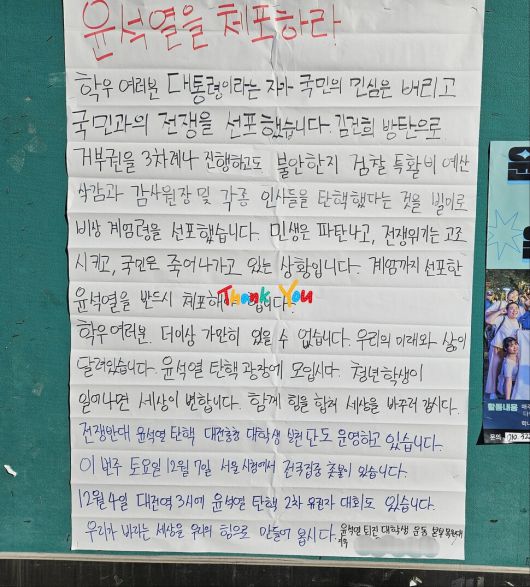 윤석열을 체포하라
학우 여러분 대통령이라는 자가 국민의 민심은 버리고
국민과의 전쟁을 선포했습니다. 김건희 방탄으로
거부권을 3차례나 진행하고도 불안한지 검찰 특활비 예산
삭감과 감사원장 및 각종 인사들을 탄핵했다는 것을 빌미로
비상 계엄령을 선포했습니다. 민생은 파탄나고, 전쟁위기는 고조
시키고, 국민은 죽어나가고 있는 상황입니다. 계엄까지 선포한
윤석열을 반드시 체포해야 합니다!
Thank You
학우 여러분. 더이상 가만히 있을 수 없습니다. 우리의 미래와 삶이
달려있습니다. 윤석열 탄핵 광장에 모입시다. 청년학생이
일어나면 세상이 변합니다. 함께 힘을 합쳐 세상을 바꾸러 갑시다.
전쟁반대 윤석열 탄핵 대전충청 대학생 실천단도 운영하고 있습니다.
이번주 토요일 12월 7일 서울 시청에서 전국집중 촛불이 있습니다.
12월 4일 대전역 3시에 윤석열 탄핵 2차 용감자 대회도 있습니다.
우리가 바라는 세상을 우리의 힘으로 만들어 봅시다.
윤석열 퇴진 대학생 운동 본부
활동내용
문의